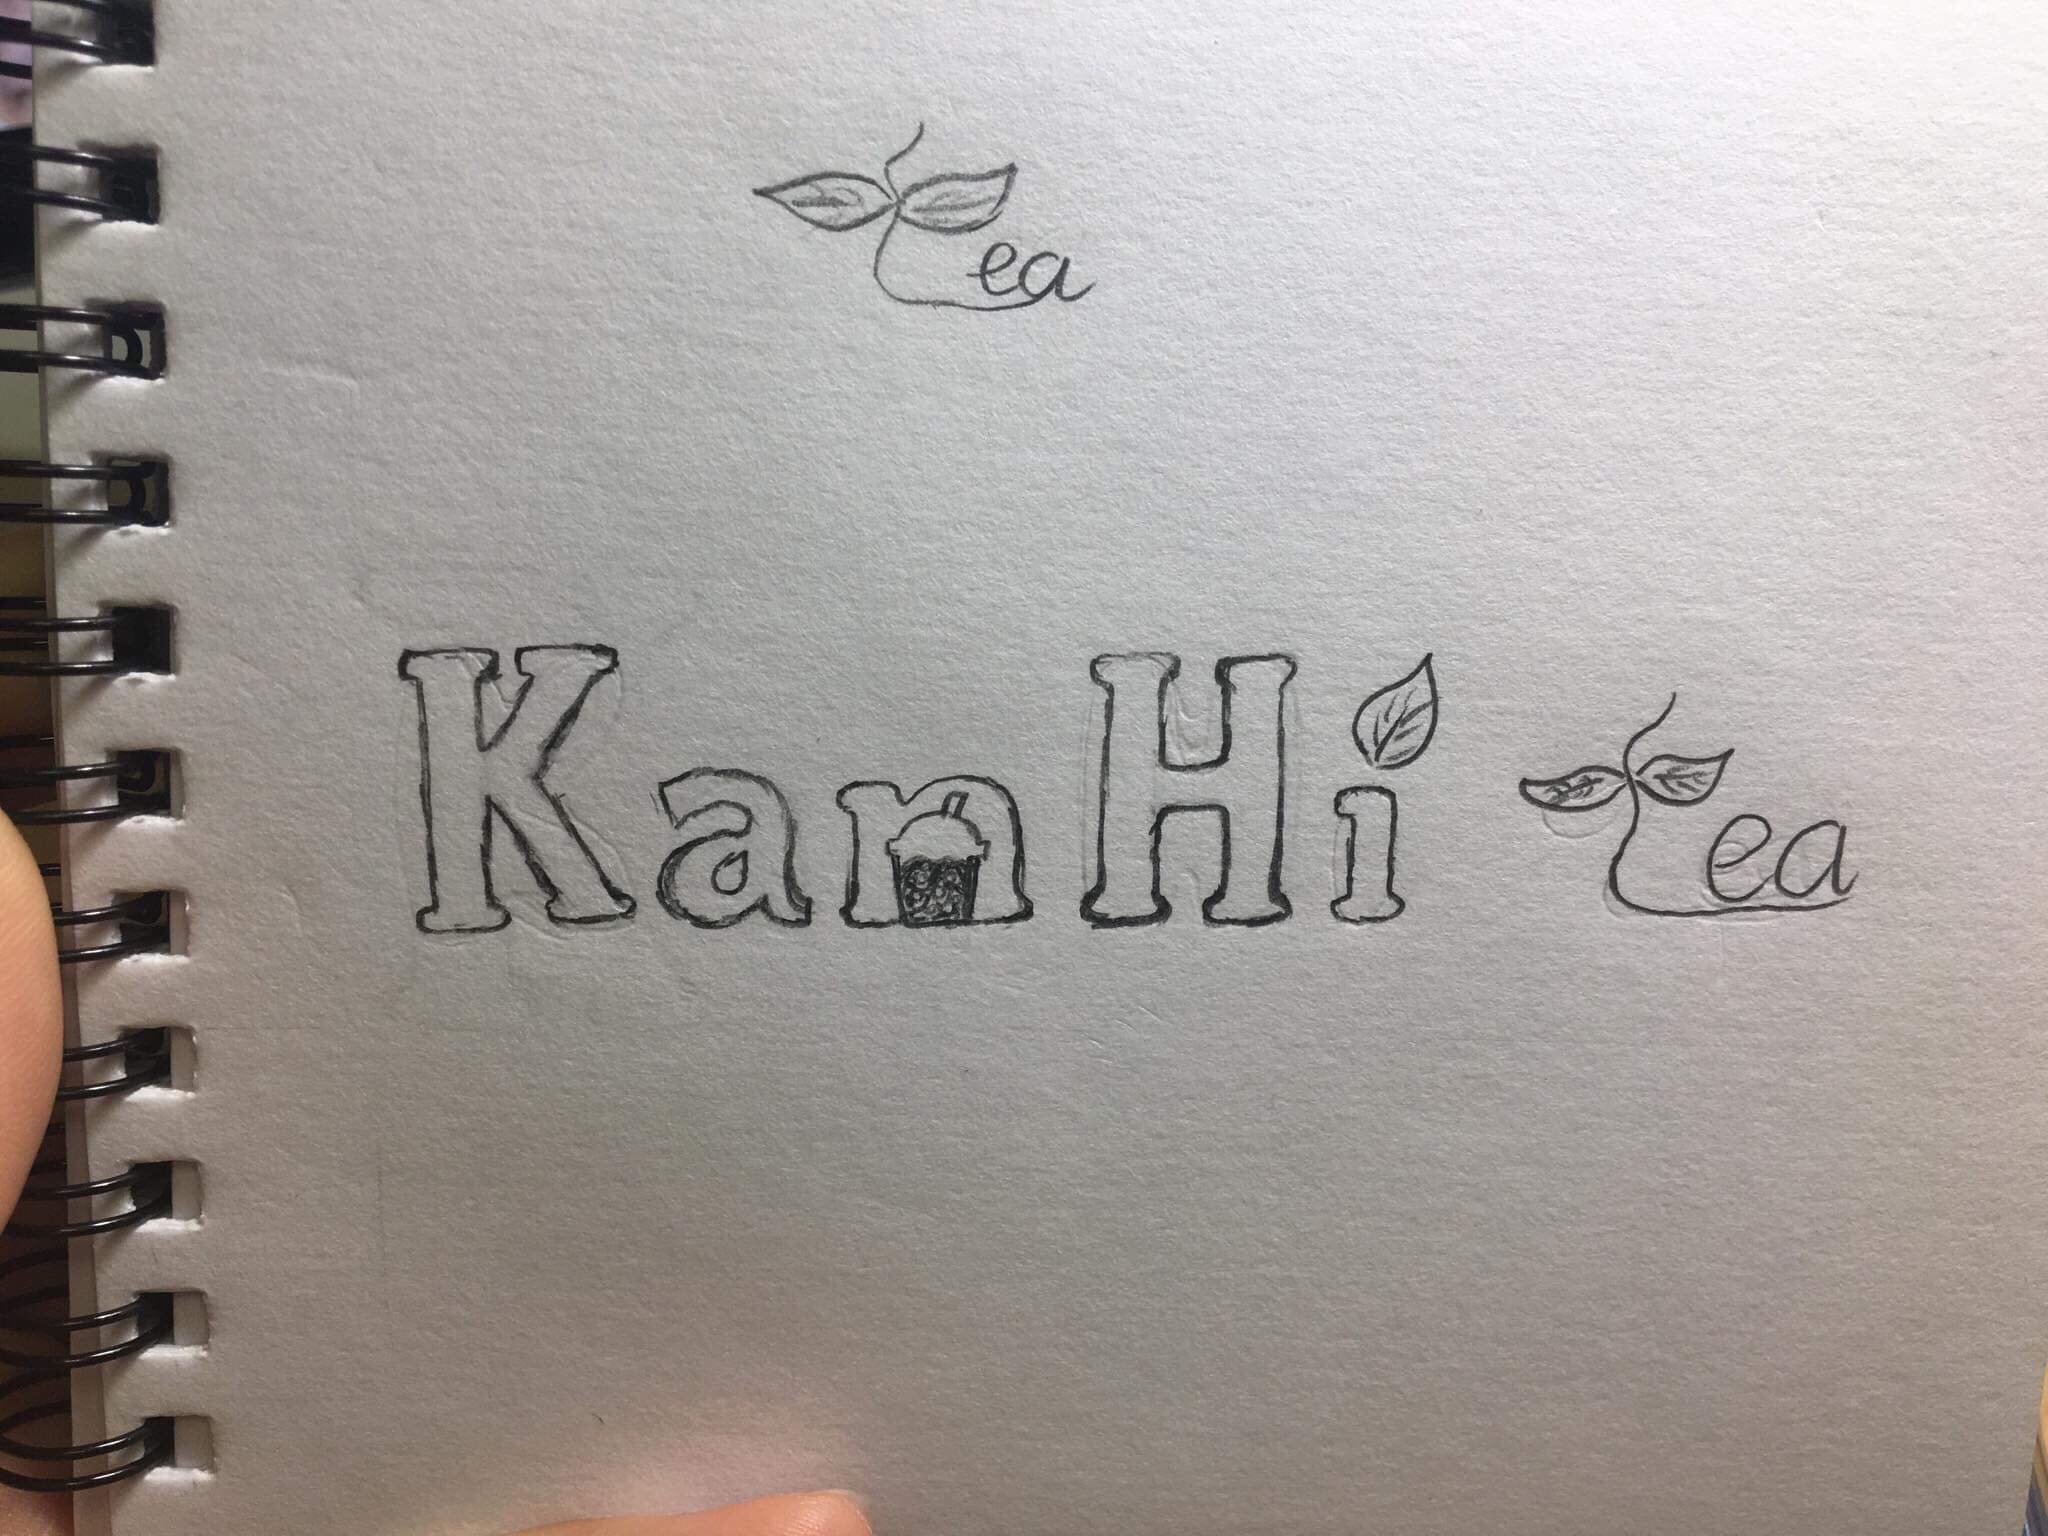 tea
KanHi tea